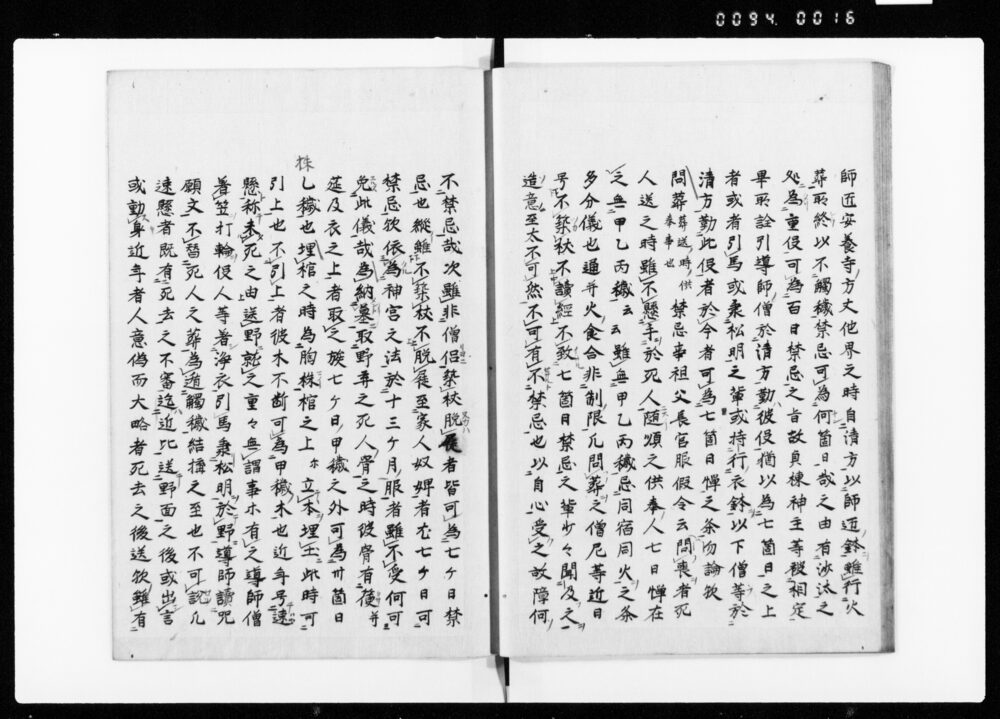 0094 0016
師匠安養寺方丈他界之時自清方以師匠鈴雖行火
葬取終以不觸穢禁忌可為何箇日哉之由有沙汰之
処為重伇可為百日禁忌之旨故貞棟神主等被相定
畢取詮引導師僧於清方勤彼伇猶以為七箇日之上
者或者引馬或秉松明之輩或持行衣鉢以下僧等於
清方勤此伇者於今者可為七箇日憚之条勿論歟
問葬葬送時供奉事也禁忌事祖父長官服假令云問喪者死
人送之時雖不懸手於死人随順之供奉人七日憚在
之無甲乙丙穢云云雖無甲乙丙穢忌同宿同火之条
多分儀也通并火食合非制限凢問葬之僧尼等近日
号不築杖不讀經不致七箇日禁忌之輩少々聞及之
造意至太不可然不可有不禁忌也以自心受之故障何
不禁忌哉次雖非僧侶築杖脱屣者皆可為七ケ日禁
忌也縱雖不築杖不脱屣至家人奴婢者尤七ケ日可
禁忌歟依為神宮之法於十三ケ月服者雖不受何可
免此儀哉為納墓取野弃之死人骨之時彼骨有蓙并
莚及衣之上者取之族七ケ日甲穢之外可為卅箇日
乙穢也埋棺之時為胸株棺之上ホ立木埋土此時可
株
引上也不引上者彼木不断可為甲穢木也近年号速
懸称未死之由送野敷之重々無謂事ホ有之導師僧
着笠打輪伇人等着浄衣引馬秉松明於野導師讀咒
願文不替死人之葬為遁觸穢結搆之至也不可説凢
速懸者既有死去之不審迄近比送野面之後或出言
或動身近年者人意偽而大略者死去之後送歟雖有